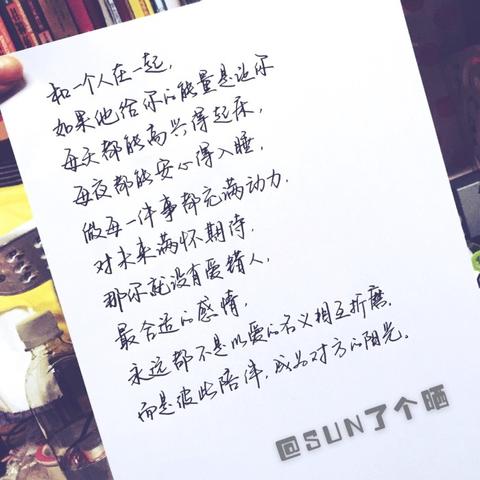 和一个人在一起，
如果他给你的能量是让你
每天都能高兴得起床，
每夜都能安心得入睡，
做每一件事都充满动力，
对未来满怀期待，
那你就没有爱错人，
最合适的感情，
永远都不是以爱的名义相互折磨，
而是彼此陪伴，成为对方的阳光。
@SUN了个晒